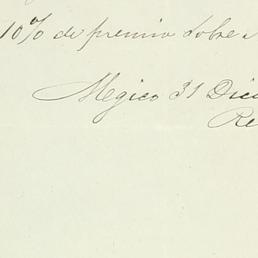 10% de premio sobre
Megico 31 Dici
Re